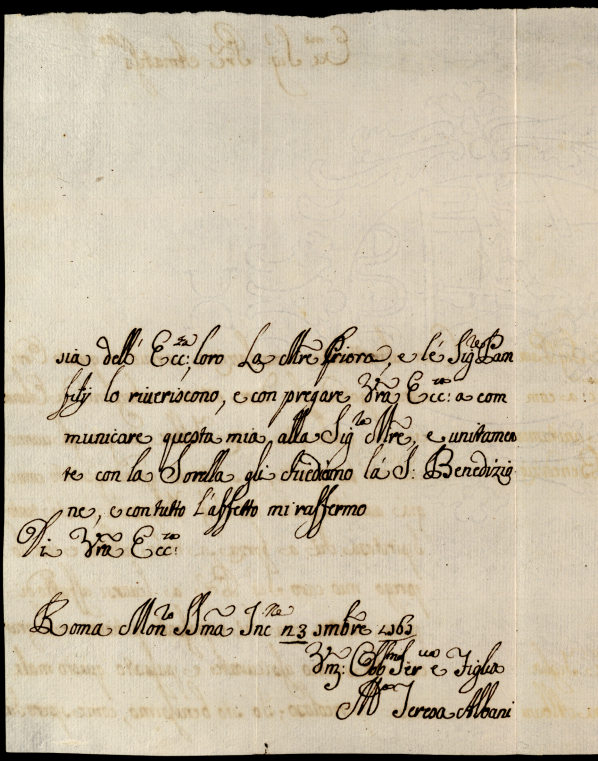 sia dell' Ecc:ze loro La Mre Priora, e le Sig:re Pam
filj lo riveriscono, e con pregare Vra Ecc:za a com
municare questa mia alla Sig:ra Mre, e unitamen
te con la Sorella gli chiediamo la S: Benedizio
ne, e con tutto l'affetto mi raffermo
Di Vra Ecc:za
Roma Mon:ro SSma Inc:ne 3 mbre
Obb:ma Ser:va e Figlia
Teresa Albani